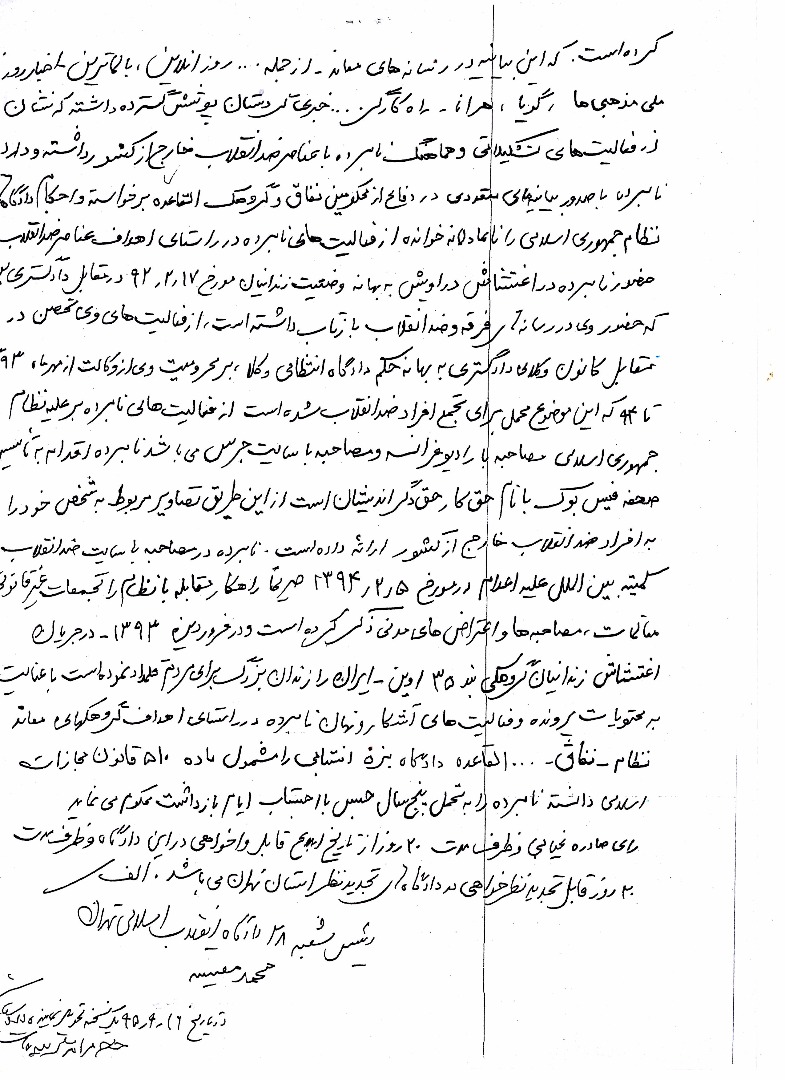 کرده است. که این بیانیه در رسانه های معاند - از جمله ... روز آنلاین، بالاترین - اخبار روز
ملی مذهبی ها، گویا، هرانا - راه کارگر ... خبری کردستان پوشش گسترده داشته که نشان
از فعالیت های تشکیلاتی و هماهنگ نامبرده با عناصر ضد انقلاب خارج از کشور داشته و دارد
نامبرده با صدور بیانیه های متعددی در دفاع از محکومین نفاق و گروهک القاعده برخواسته و احکام دادگاه
نظام جمهوری اسلامی را ناعادلانه خوانده از فعالیت های نامبرده در راستای اهداف عناصر ضد انقلاب
حضور نامبرده در اغتشاش دراویش به بهانه وضعیت زندانیان مورخ ۹۲،۲،۱۷ در مقابل دادگستری
که حضور وی در رسانه های فرقه و ضد انقلاب بازتاب داشته است، از فعالیت های وی تحصن در
مقابل کانون وکلای دادگستری به بهانه حکم دادگاه انتظامی وکلا، بر محرومیت وی از وکالت از مهرماه ۹۳
تا ۹۴ که این موضوع محمل برای تجمع افراد ضد انقلاب شده است از فعالیت های نامبرده بر علیه نظام
جمهوری اسلامی مصاحبه با رادیو فرانسه و مصاحبه با سایت جرس می باشد نامبرده اقدام به تأسیس
صفحه فیس بوک با نام حق کار حق دگراندیشان است از این طریق تصاویر مربوط به شخص خود را
به افراد ضد انقلاب خارج از کشور ارائه داده است. نامبرده در مصاحبه با سایت ضد انقلاب
کمیته بین الملل علیه اعدام در مورخ ۱۳۹۴،۲،۵ صریحاً راهکار مقابله با نظام را تجمعات غیرقانونی
مقالات، مصاحبه ها و اعتراض های مدنی ذکر کرده است و در فروردین ۱۳۹۳ - در جریان
اغتشاش زندانیان گروهکی بند ۳۵۰ اوین - ایران را زندان بزرگ برای مردم قلمداد نموده است با عنایت
به محتویات پرونده و فعالیت های آشکار و نهان نامبرده در راستای اهداف گروهکهای معاند
نظام - نفاق - ... القاعده دادگاه بزه انتسابی را مشمول ماده ۵۱۰ قانون مجازات
اسلامی دانسته نامبرده را به تحمل پنج سال حبس با احتساب ایام بازداشت محکوم می نماید
رای صادره غیابی و ظرف مدت ۲۰ روز از تاریخ ابلاغ قابل واخواهی در این دادگاه و ظرف مدت
۲۰ روز قابل تجدید نظرخواهی در دادگاه های تجدید نظر استان تهران می باشد. الف
رئیس شعبه ۲۸ دادگاه انقلاب اسلامی تهران
محمد مقیسه
در تاریخ ۹۵،۹،۱۶ یک نسخه تحویل نماینده دادستان